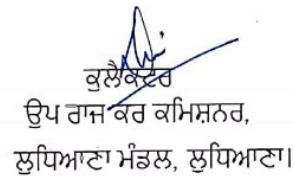 ਕੁਲੈਕਟਰ
ਉਪ ਰਾਜ ਕਰ ਕਮਿਸ਼ਨਰ,
ਲੁਧਿਆਣਾ ਮੰਡਲ, ਲੁਧਿਆਣਾ।